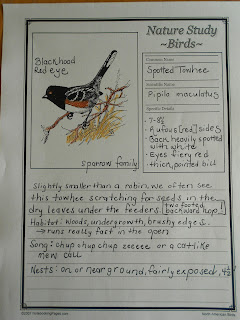 Nature Study
~Birds~
Blackhood
Red eye
Sparrow family
Common Name
Spotted Towhee
Scientific Name
Pipilo maculatus
Specific Details
- 7-8½
- Rufous [red] sides
- Back heavily spotted
with white
- Eyes fiery red
- thick, pointed bill
Slightly smaller than a robin, we often see
this towhee scratching for seeds in the
dry leaves under the feeders
two footed
backward hop!
Habitat: Woods, undergrowth, brushy edges.
→ runs really fast in the open
Song: chup chup chup zeeeee or a catlike
mew call
Nests: on or near ground, fairly exposed, 4½'